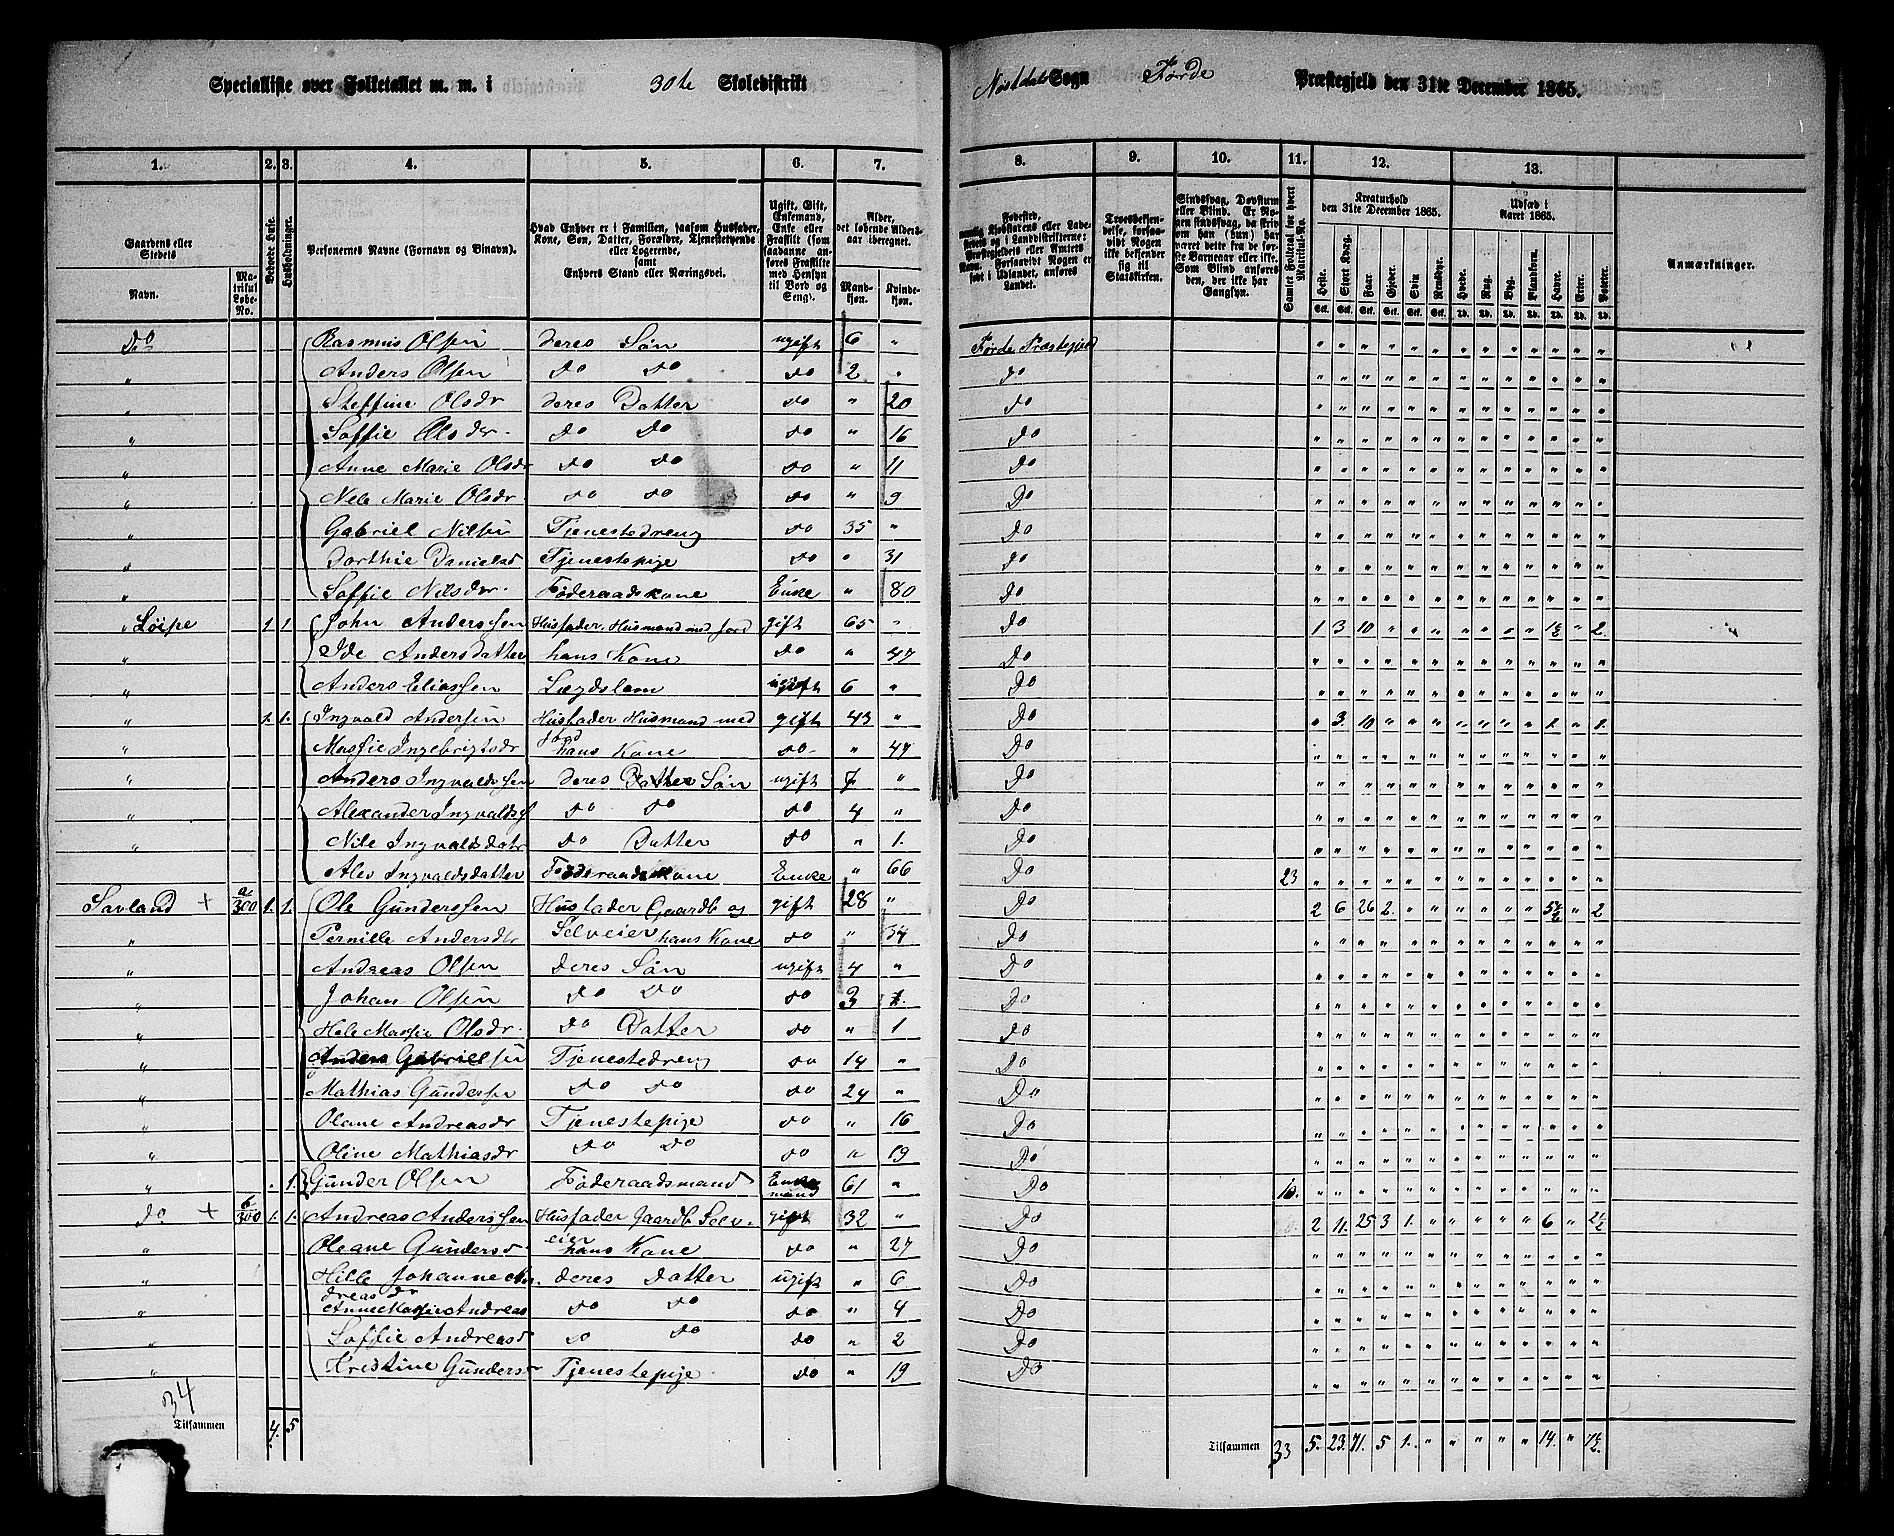 Specialliste over Folketallet m. m. i 30te Skoledistrikt
Sogn Førde Præstegjeld den 31te December 1865.
1. 2. 3. 4. 5. 6. 7.
8. 9. 10. 11. 12. 13.
Gaardens eller Stedets Navn.
Matrikul Løbe-No.
Beboede Huse.
Husholdninger.
Personernes Navne (Fornavn og Binavn).
Hvad Enhver er i Familien, saasom Husfader, Kone, Søn, Datter, Forældre, Tjenestetyende eller Logerende, samt Enhvers Stand eller Næringsvei.
Ugift, Gift, Enkemand, Enke eller Fraskilt (som saadanne anføres Fraskilte med Hensyn til Bord og Seng).
Alder, det løbende Aldersaar iberegnet.
Mandkjøn. Kvindekjøn.
Kreaturhold den 31te December 1865.
Udsæd i Aaret 1865.
Anmærkninger.
Heste. Stort Kvæg. Faar. Gjeder. Svin. Rensdyr. Hvede. Rug. Byg. Blandkorn. Havre. Erter. Poteter.
Do Rasmus Olsen deres Søn ugift 6 " Førde Præstegjeld
" Anders Olsen Do Do Do 2 " Do
" Steffine Olsdr deres Datter Do " 20 Do
" Soffie Olsdr. Do Do Do " 16 Do
" Anne Marie Olsdr Do Do Do " 11 Do
" Nele Marie Olsdr Do Do Do " 9 Do
" Gabriel Nilsen Tjenestedreng Do 35 " Do
" Dorthie Danielsd Tjenestepige Do " 31 Do
" Soffie Nilsdr. Føderaadskone Enke " 80 Do
" Løipe 1. 1. John Anderssen Husfader, Husmand med Jord gift 65 " Do 1 3 10 " " " " " " " 1½ " 2
" Ide Andersdatter hans Kone Do " 47 Do
" Anders Eliassen Lægdslem ugift 6 " Do
" 1. 1. Ingvald Andersen Husfader Husmand med gift 43 " Do " 3 10 " " " " " " " 1 " 1
" Massie Ingebrigtsdr Jord hans Kone Do " 47 Do
" Anders Ingvaldssen deres Datter Søn ugift 7 " Do
" Alexander Ingvaldss Do Do Do 4 " Do
" Nile Ingvaldsdatr Do Datter Do " 1. Do
" Alev Ingvaldsdatter Føderaadskone Enke " 66 Do 23
Savland + a 300 1. 1. Ole Gunderssen Husfader Gaardb og gift 28 " Do 2 6 26 2 " " " " " " 5½ " 2
" Pernille Andersdr Selveier hans Kone Do " 34 Do
" Andreas Olsen deres Søn ugift 4 " Do
" Johan Olsen Do Do Do 3 Do
" Hele Massie Olsdr. Do Datter Do " 1 Do
" Anders Gabrielsen Tjenestedreng Do 14 " Do
" Mathias Gundersen Do Do Do 24 " Do
" Olane Andreasdr Tjenestepige Do " 16 Do
" Oline Mathiasdr Do Do Do " 19 Do
" 1. Gunder Olsen Føderaadsmand Enkemand 61 " Do 10.
Do + b 300 1. 1. Andreas Anderssen Husfader Gaardb Selv- gift 32 " Do 2 11. 25 3 1. " " " " " 6 " 2½
" Oleane Gundersd. eier hans Kone Do " 27 Do
" Hille Johanne An- deres Datter ugift " 6 Do
dreasdr
" Anne Massie Andreas Do Do Do " 4 Do
" Soffie Andreasd Do Do Do " 2 Do
" Kristine Gundersdr Tjenestepige Do " 19 Do
34
Tilsammen 4. 5
Tilsammen 33 5. 23. 71. 5 1. " " " " " 14. " 7½